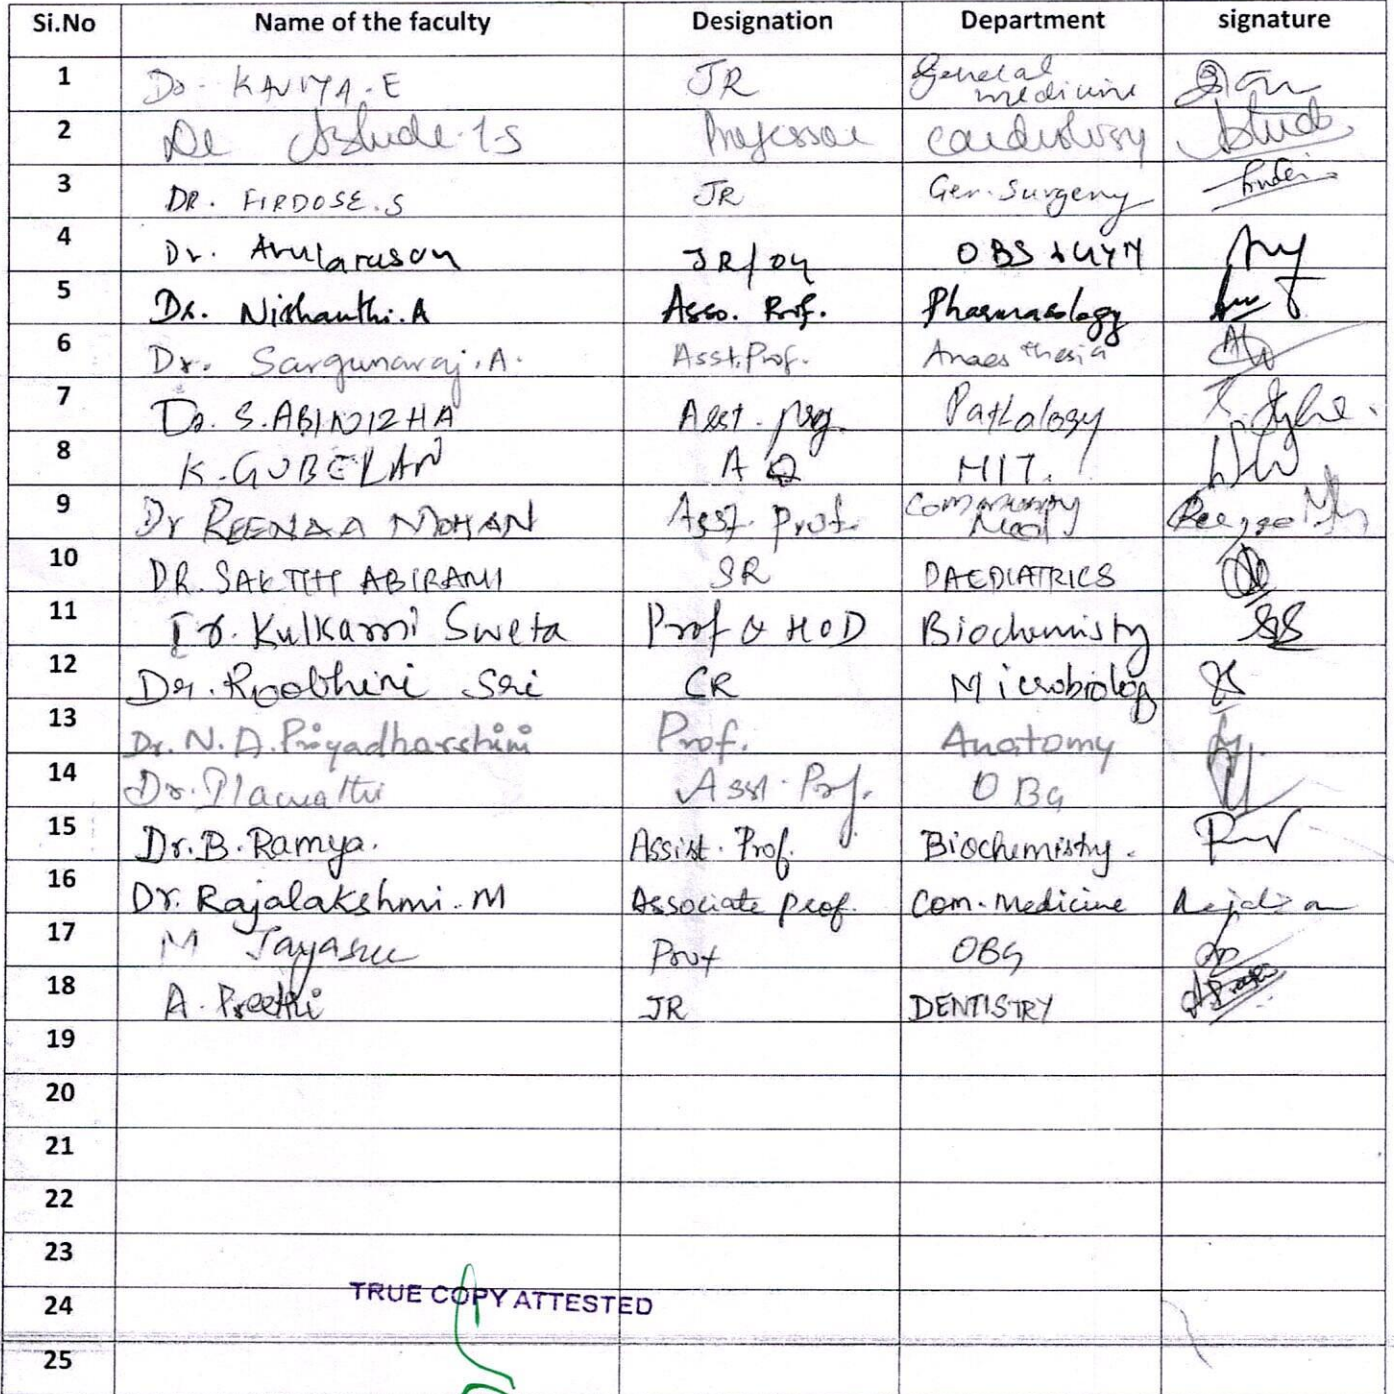 Si.No Name of the faculty Designation Department signature
1 Dr. KAVIYA.E JR General medicine
2 Dr Professor Cardiology
3 DR. FIRDOSE.S JR Gen. Surgery
4 Dr. Arularasan JR/OG OBS & GYN
5 Dr. Nishanthi.A Asso. Prof. Pharmacology
6 Dr. Sargunaraj.A. Asst.Prof. Anaesthesia
7 Dr. S.ABINIZHA Asst. Prof. Pathology
8 K.GUBELAN A HIT.
9 Dr REENAA MOHAN Asst. Prof. Community Med
10 DR. SAKTHI ABIRAMI SR PAEDIATRICS
11 Dr. Kulkarni Sweta Prof & HOD Biochemistry
12 Dr. Roobhini Sri CR Microbiology
13 Dr. N. D. Priyadharshini Prof. Anatomy
14 Dr. Asst. Prof. OBG
15 Dr. B. Ramya. Assist. Prof. Biochemistry.
16 Dr. Rajalakshmi. M Associate prof. Com. Medicine
17 M Jayasree Prof OBG
18 A. Preethi JR DENTISTRY
19
20
21
22
23
24 TRUE COPY ATTESTED
25